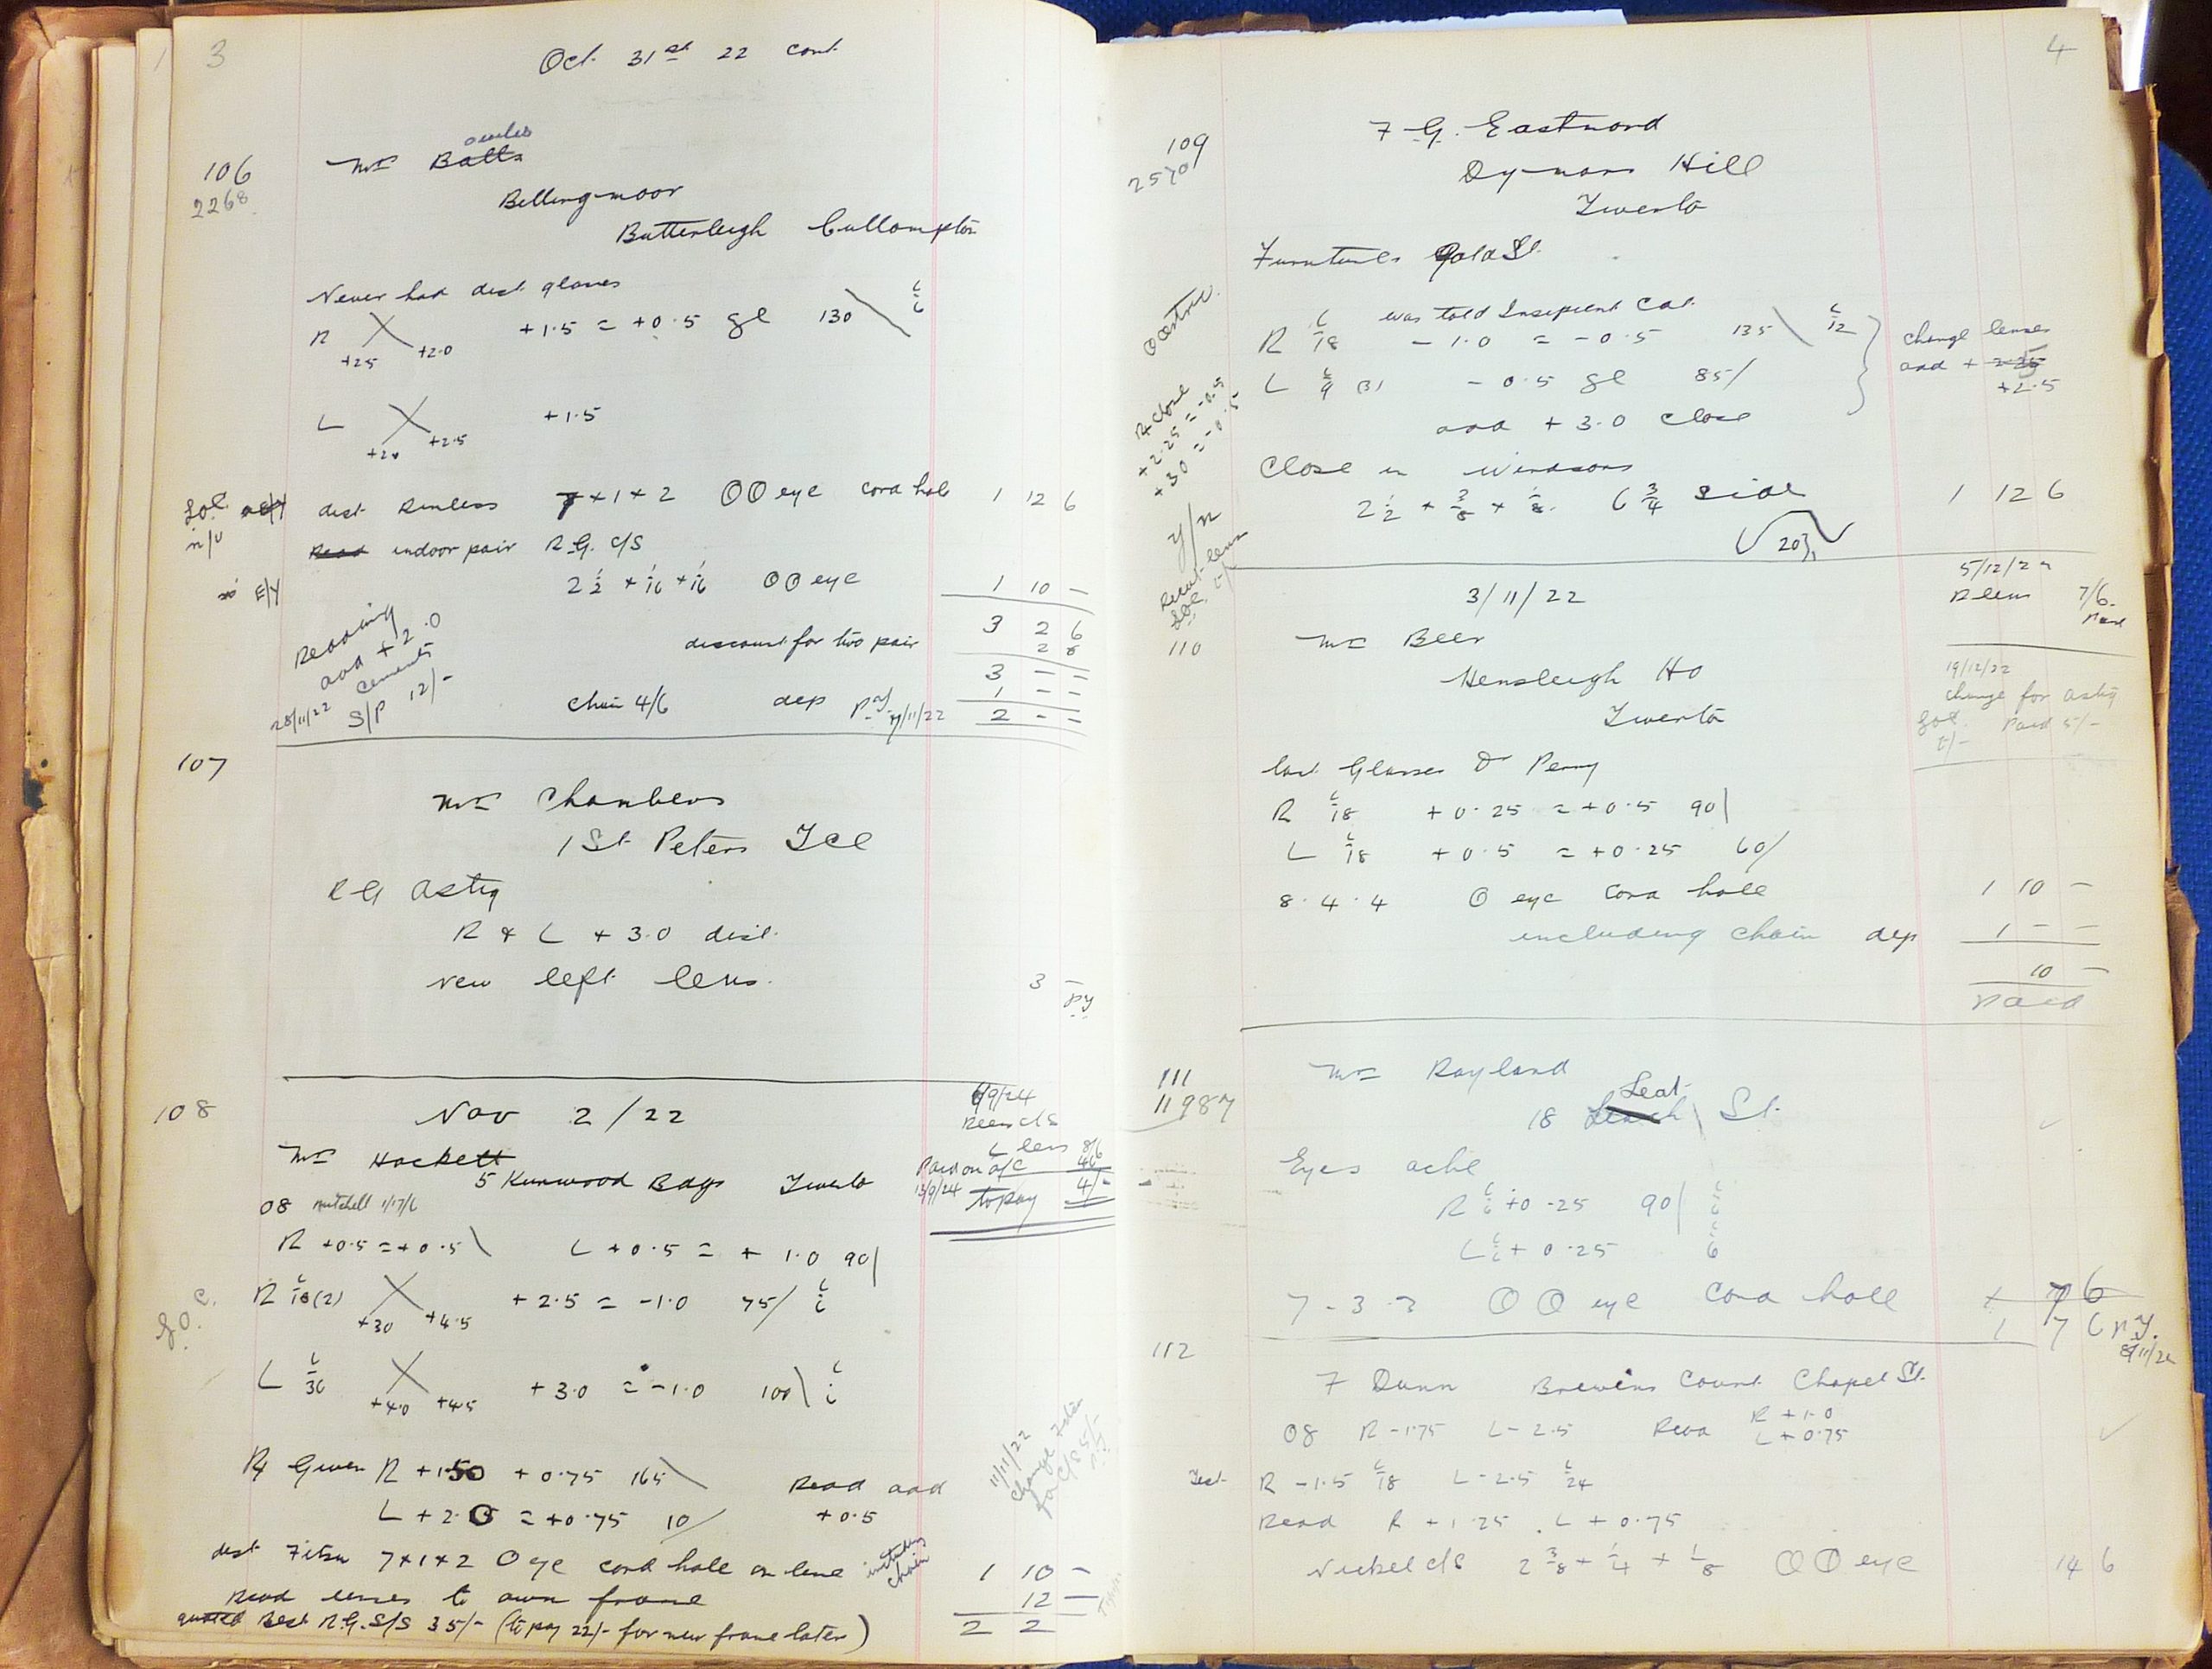 3
Oct 31st 22 cont
106
2268
Mrs Batts
Bellingmoor
Butterleigh Cullompton
Never had dist glasses
R +2.5 +2.0 +1.5 = +0.5 gl 130\ 6/6
L +2.0 +2.5 +1.5
dist Rimless 7 x 1 x 2 00 eye cord hole 1 12 6
Read indoor pair R.G. c/s
E/Y 2 1/2 x 1/16 x 1/16 00 eye 1 10 -
3 2 6
discount for two pair 2 6
3 - -
Chain 4/6 dep 1 - -
py 7/11/22 2 - -
Reading
add +2.0
cements
S/P 12/-
28/11/22
107
Mrs Chambers
1 St Peters Tce
RG Astig
R & L + 3.0 dist.
New left lens. 3 -
py
108
Nov 2/22
Mrs Hockett
5 Kunwood Bdgs
OG Mitchell 1/17/6
R +0.5 = +0.5\ L +0.5 = + 1.0 90|
R 6/18(2) +30 +4.5 +2.5 = -1.0 75/ 6/6
L 6/36 +4.0 +4.5 +3.0 = -1.0 100\ 6/6
Rx Given R +1.50 + 0.75 165\ Read add
L +2.0 = +0.75 10/ +0.5
dist 7 x 1 x 2 0 eye cord hole on lens including chain 1 10 -
Read lenses to own frame 12 -
quoted Best R.G. S/S 35/- (to pay 22/- for new frame later) 2 2
9/24
L lens 8/6
Paid on a/c 4/6
13/9/24 to pay 4/-
11/11/22
change
4
109
2570
F G. Eastmond
Dymans Hill
Furnitures Gold St.
was told Insipient Cat.
R 6/18 - 1.0 = - 0.5 135\ 6/12
L 6/9 - 0.5 gl 85/
add + 3.0 close
change lenses
add + 2.25
+2.5
Rx close
+2.25 = -0.5
+3.0 = -0.5
Close in Windsors
2 1/2 x 3/8 x 1/8. 6 3/4 side 1 12 6
20
y/n
5/12/22
R lens 7/6.
Paid
110
3/11/22
Mrs Beer
Hensleigh Ho
19/12/22
change for astig
Paid 5/-
last Glasses Dr Perry
R 6/18 + 0.25 = +0.5 90|
L 6/18 + 0.5 = +0.25 60/
8.4.4 0 eye cord hole 1 10 -
including chain dep 1 - -
10 -
Paid
111
11987
Mrs Rayland
18 Leat St.
Eyes ache
R 6/6 +0.25 90| 6/6
L 6/6 + 0.25 6/6
7-3.3 00 eye cord hole 1 7 6
1 7 6 py.
8/11/22
112
F Dunn Brewins Court Chapel St.
OG R -1.75 L - 2.5 Read R +1.0
L +0.75
Test R -1.5 6/18 L -2.5 6/24
Read R +1.25 . L + 0.75
Nickel c/s 2 3/8 x 1/4 x 1/8 00 eye 14 6